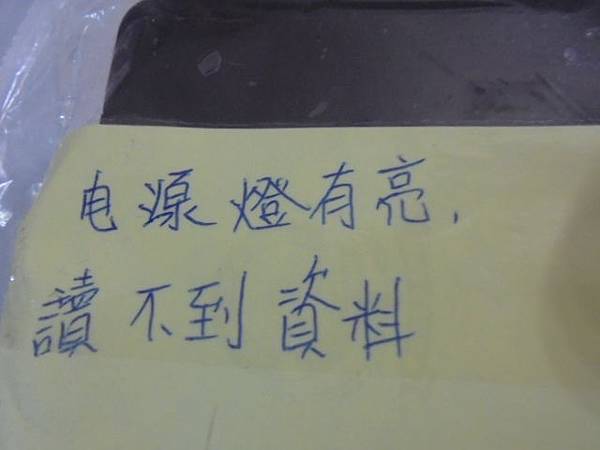 电源燈有亮,
讀不到資料